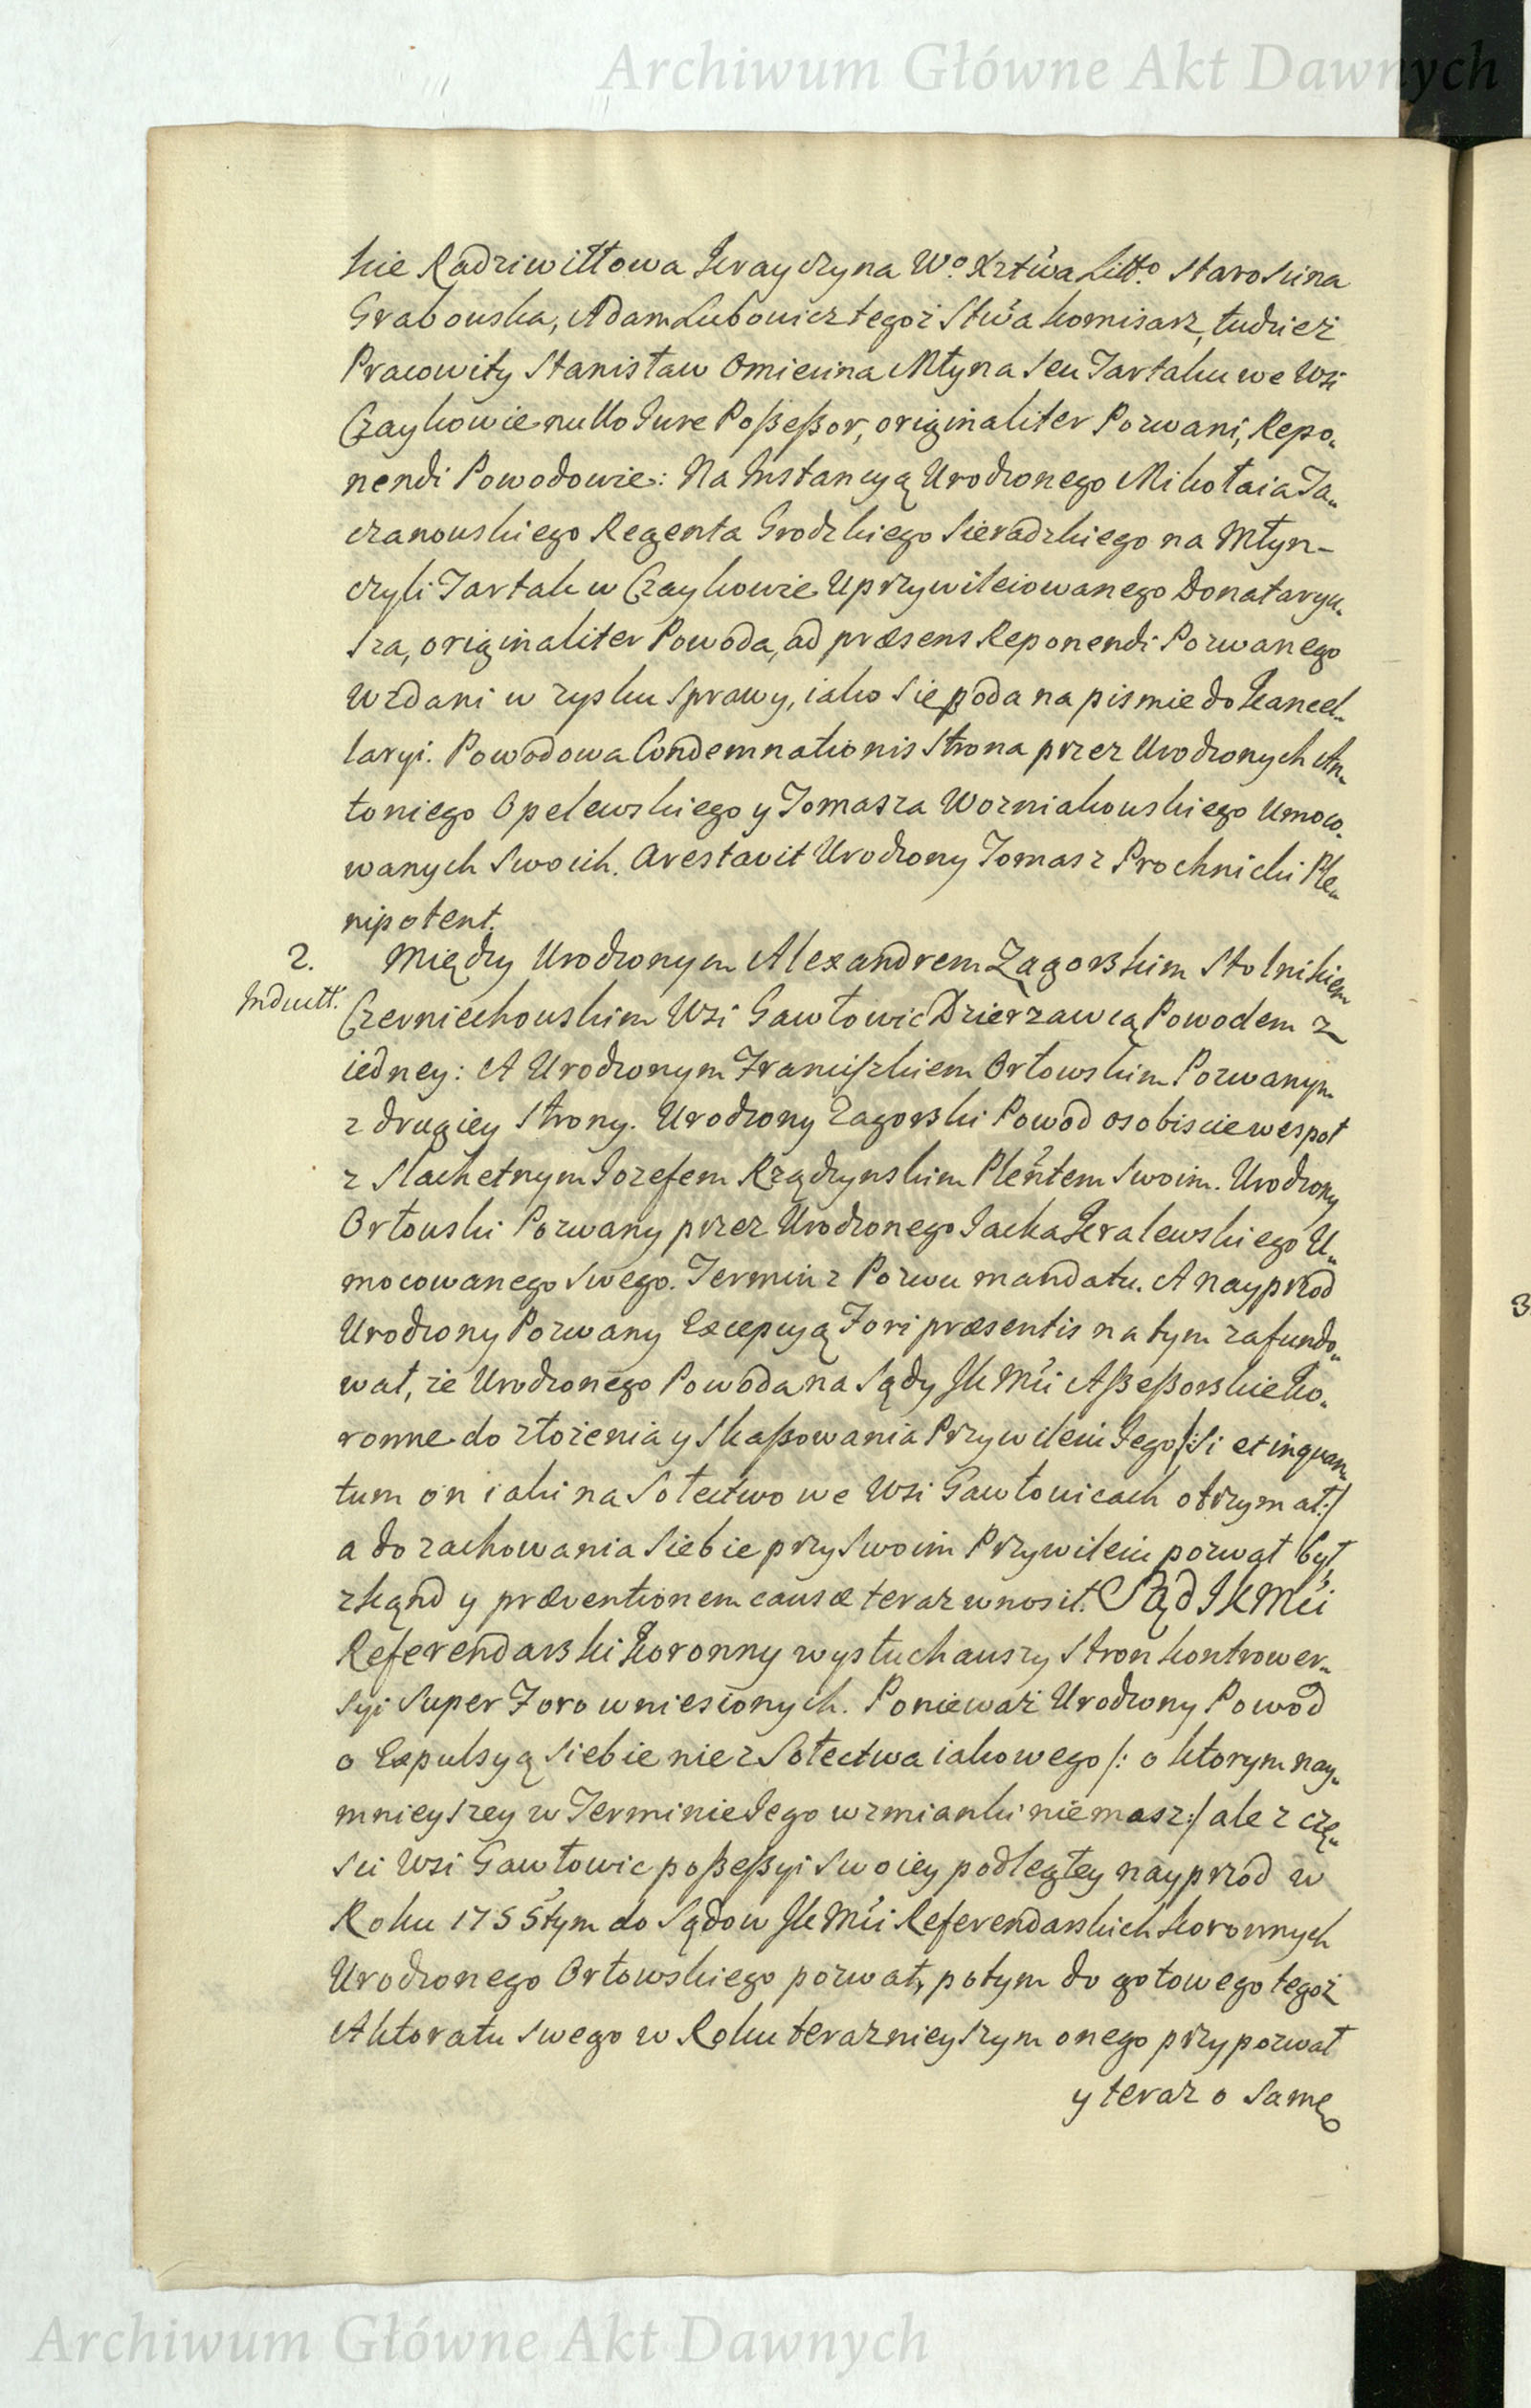 Archiwum Główne Akt Dawnych
kie Radziwiłłowa Krayczyna Wº Xztwa Littº Starosćina
Grabowska, Adam Lubowicz tegoż Stwa Komisarz, tudzież
Pracowity Stanisław Omiecina Młyna seu Tartaku we Wsi
Czaykowie nullo Jure Poßeßor, originaliter Pozwani, Repo„
nendi Powodowie: Na Instancyą Urodzonego Mikołaia Ta„
czanowskiego Regenta Grodzkiego Sieradzkiego na Młyn-
czyli Tartak w Czaykowie Uprzywileiowanego Donataryu„
sza, originaliter Powoda, ad præsens Reponendi Pozwanego
Wzdani w zysku sprawy, iako się poda na pismie do Kancel„
laryi. Powodowa Condemnationis Strona przez Urodzonych An„
toniego Opelewskiego y Tomasza Wozniakowskiego Umoco„
wanych Swoich. Arestavit Urodzony Tomasz Prochnicki Ple„
nipotent.
2. Między Urodzonym Alexandrem Zagorskim Stolnikiem
Indult. Czerniechowskim Wsi Gawłowic Dzierzawcą Powodem z
iedney: A Urodzonym Franciszkiem Orłowskim Pozwanym
z drugiey Strony. Urodzony Zagorski Powod osobiscie wespoł
z Slachetnym Jozefem Rządzynskim Pleńtem Swoim. Urodzony
Orłowski Pozwany przez Urodzonego Jacka Kralewskiego U„
mocowanego Swego. Termin z Pozwu mandatu. A nayprzod
Urodzony Pozwany Excepcyą Fori præsentis na tym zafundo„
wał, że Urodzonego Powoda na Sądy JK Mci Aßeßorskie Ko„
ronne do złożenia y Skaßowania Przywileiu Jego /: Si et inquan„
tum on iaki na Sołectwo we Wsi Gawłowicach otrzymał :/
a do zachowania Siebie przy Swoim Przywileiu pozwał był,
zkąnd y præventionem causæ teraz wnosił. Sąd JK Mci
Referendarski Koronny wysłuchawszy Stron kontrower„
syi Super Foro wniesionych. Ponieważ Urodzony Powod
o Expulsyą Siebie nie z Sołectwa iakowego /: o ktorym nay„
mnieyszey w Terminie Jego wzmianki niemasz :/ ale z czę„
sci Wsi Gawłowic poßeßyi Swoiey podległey nayprzod w
Roku 1755tym do Sądow JK Mci Referendarskich Koronnych
Urodzonego Orłowskiego pozwał, potym do gotowego tegoż
Aktoratu swego w Roku terazniejszym onego przypozwał
y teraz o samę
3
Archiwum Główne Akt Dawnych